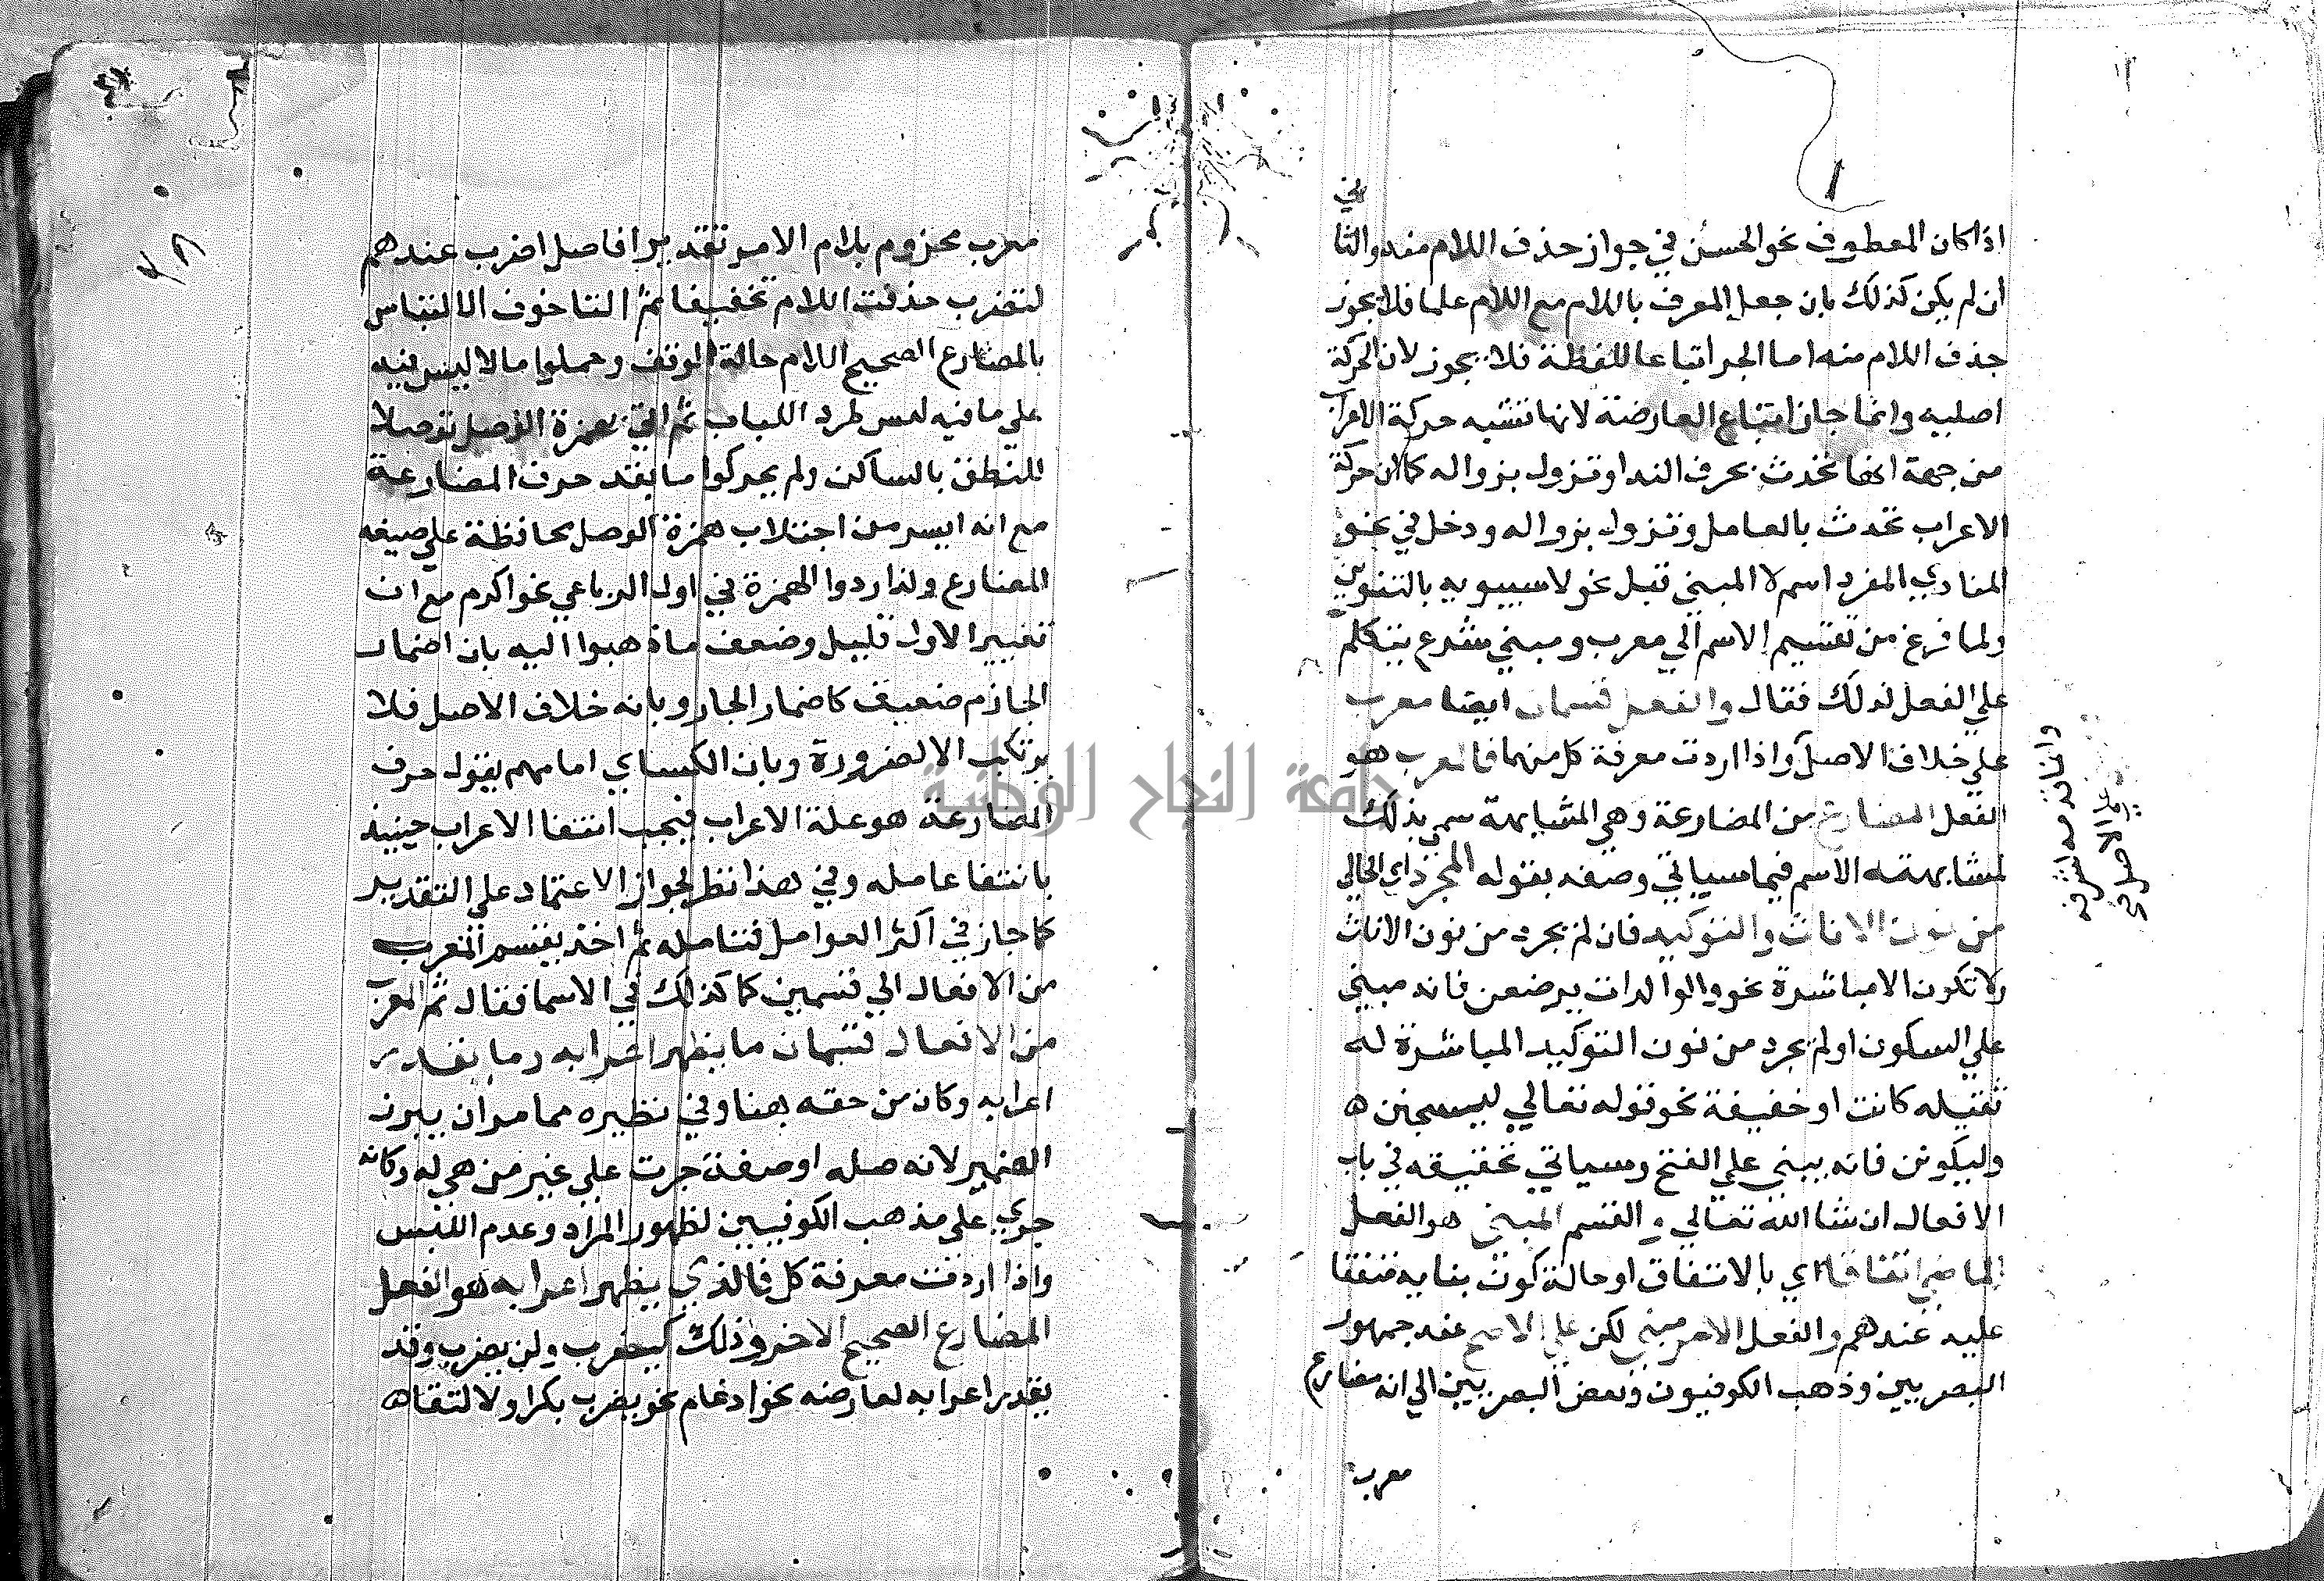 اذا كان المعطوف نحو الحسن في جواز حذف اللام منه والثاني
ان لم يكن كذلك بان جعل المعرف باللام مع اللام علما فلا يجوز
حذف اللام منه اما الجر اتباعا للفظة فلا يجوز لان الحركة
اصليه وانما جاز اتباع العارضة لانها تشبه حركة الاعراب
من جهة انها تحدث بحرف الندا وتزول بزواله كما ان حركة
الاعراب تحدث بالعامل وتزول بزواله ودخل في نحو
المنادي المفرد اسم لا المبني قبل نحو لا سيبويه بالتنوين
ولما فرغ من تقسيم الاسم الي معرب ومبني شرع يتكلم
علي الفعل لذلك فقال والفعل قسمان ايضا معرب
علي خلاف الاصل واذا اردت معرفة كل منهما فالمعرب هو
الفعل المضارع من المضارعة وهي المشابهة سمي بذلك
لمشابهته الاسم فيما سياتي وصفه بقوله المجرد اي الخالي
من نون الاناث والتوكيد فان لم يجرد من نون الاناث
ولا تكون الا مباشرة نحو والوالدات يرضعن فانه مبني
علي السكون او لم يجرد من نون التوكيد المباشرة له
ثقيله كانت او خفيفة نحو قوله تعالي ليسجنن ه
وليكونن فانه يبني علي الفتح وسياتي تحقيقه في باب
الافعال ان شا الله تعالي و القسم المبني هو الفعل
الماضي اتفاقا اي بالاتفاق او حالة كون بنايه متفقا
عليه عندهم والفعل الامر مبني لكن علي الاصح عند جمهور
البصريين وذهب الكوفيون وبعض البصريين الي انه مضارع
معرب
علي الاصل
معرب مجزوم بلام الامر تقديرا فاصل اضرب عندهم
لتضرب حذفت اللام تخفيفا ثم التا خوف الالتباس
بالمضارع الصحيح اللام حالة الوقف وحملوا ما لا لبس فيه
علي ما فيه لبس لطرد الباب ثم اتي بهمزة الوصل توصلا
للنطق بالساكن ولم يحركوا ما بعد حرف المضارعة
مع انه ايسر من اجتلاب همزة الوصل محافظة علي صيغه
المضارع ولذا ردوا الهمزة في اول الرباعي نحو اكرم مع ان
تغيير الاول قليل وضعف ما ذهبوا اليه بان اضمار
الجازم ضعيف كاضمار الجار وبانه خلاف الاصل فلا
يرتكب الا لضرورة وبان الكساي امامهم يقول حرف
المضارعة هو علة الاعراب فيجب انتفا الاعراب حينيذ
بانتفا عامله وفي هذا نظر لجواز الاعتماد علي التقدير
كما جاز في اكثر العوامل فتامله ثم اخذ يقسم المعرب
من الافعال الي قسمين كما كذلك في الاسما فقال ثم المعرب
من الافعال قسمان ما يظهر اعرابه وما يقدر
اعرابه وكان من حقه هنا وفي نظيره مما مر ان يبرز
الضمير لانه صله او صفة جرت علي غير من هي له وكانه
جري علي مذهب الكوفيين لظهور المراد وعدم اللبس
واذا اردت معرفة كل فالذي يظهر اعرابه هو الفعل
المضارع الصحيح الاخر وذلك كيضرب ولن يضرب وقد
يقدر اعرابه لعارضه نحو ادغام نحو يضرب بكرا ولالتقاه
جامعة النجاح الوطنية